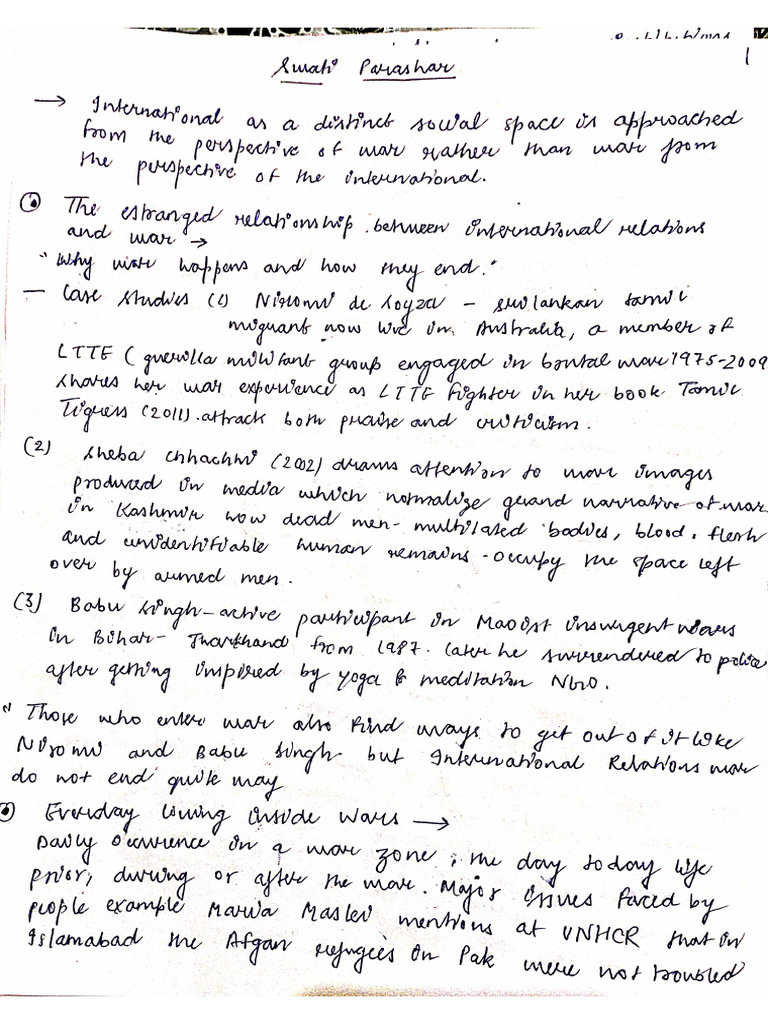 1
Swati Parashar
→ International as a distinct social space is approached
from the perspective of war rather than war from
the perspective of the international.
The estranged relationship between international relations
and war →
"Why war happens and how they end."
— Case studies (1) Niromi de Soyza - Sri lankan tamil
migrant now live in Australia, a member of
LTTE (guerilla militant group engaged in brutal war 1975-2009
shares her war experience as LTTE fighter in her book Tamil
Tigress (2011). attrack both praise and criticism.
(2) Sheba Chhachhi (2002) draws attention to war images
produced in media which normalize grand narrative of war
in Kashmir how dead men - multilated bodies, blood, flesh
and unidentifiable human remains - occupy the space left
over by armed men.
(3) Babu Singh - active participant in Maoist insurgent wars
in Bihar - Jharkhand from 1987. later he surrendered to police
after getting inspired by yoga & meditation NGO.
" Those who enter war also find ways to get out of it like
Niromi and Babu Singh but International Relations war
do not end quite way
Everyday living inside wars →
Daily occurrence in a war zone, the day today life
prior, during or after the war. Major issues faced by
people example Marwa Maslei mentions at UNHCR that in
Islamabad the Afgan refugees in Pak were not troubled